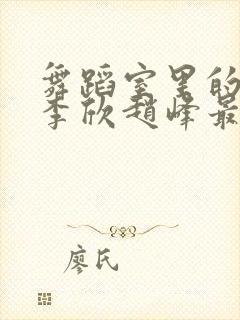 舞蹈室里的
李欣赵峰最
廖氏